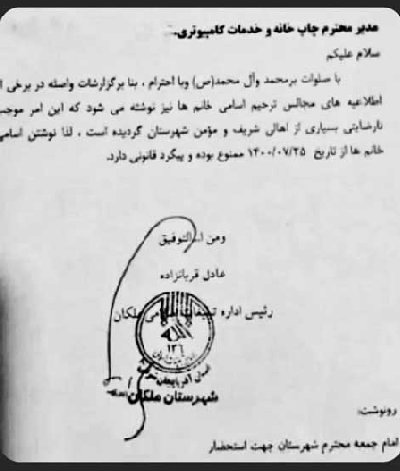 مدیر محترم چاپ خانه و خدمات کامپیوتری.
سلام علیکم
با صلوات برمحمد وآل محمد(ص) وبا احترام ، بنا برگزارشات واصله در برخی
اطلاعیه های مجالس ترحیم اسامی خانم ها نیز نوشته می شود که این امر موجب
نارضایتی بسیاری از اهالی شریف و مؤمن شهرستان گردیده است ، لذا نوشتن اسامی
خانم ها از تاریخ ۱۴۰۰/۰۷/۲۵ ممنوع بوده و پیگرد قانونی دارد.
ومن ا... التوفیق
عادل قربانزاده
رئیس اداره تبلیغات اسلامی ملکان
شهرستان ملکان
رونوشت:
امام جمعه محترم شهرستان جهت استحضار